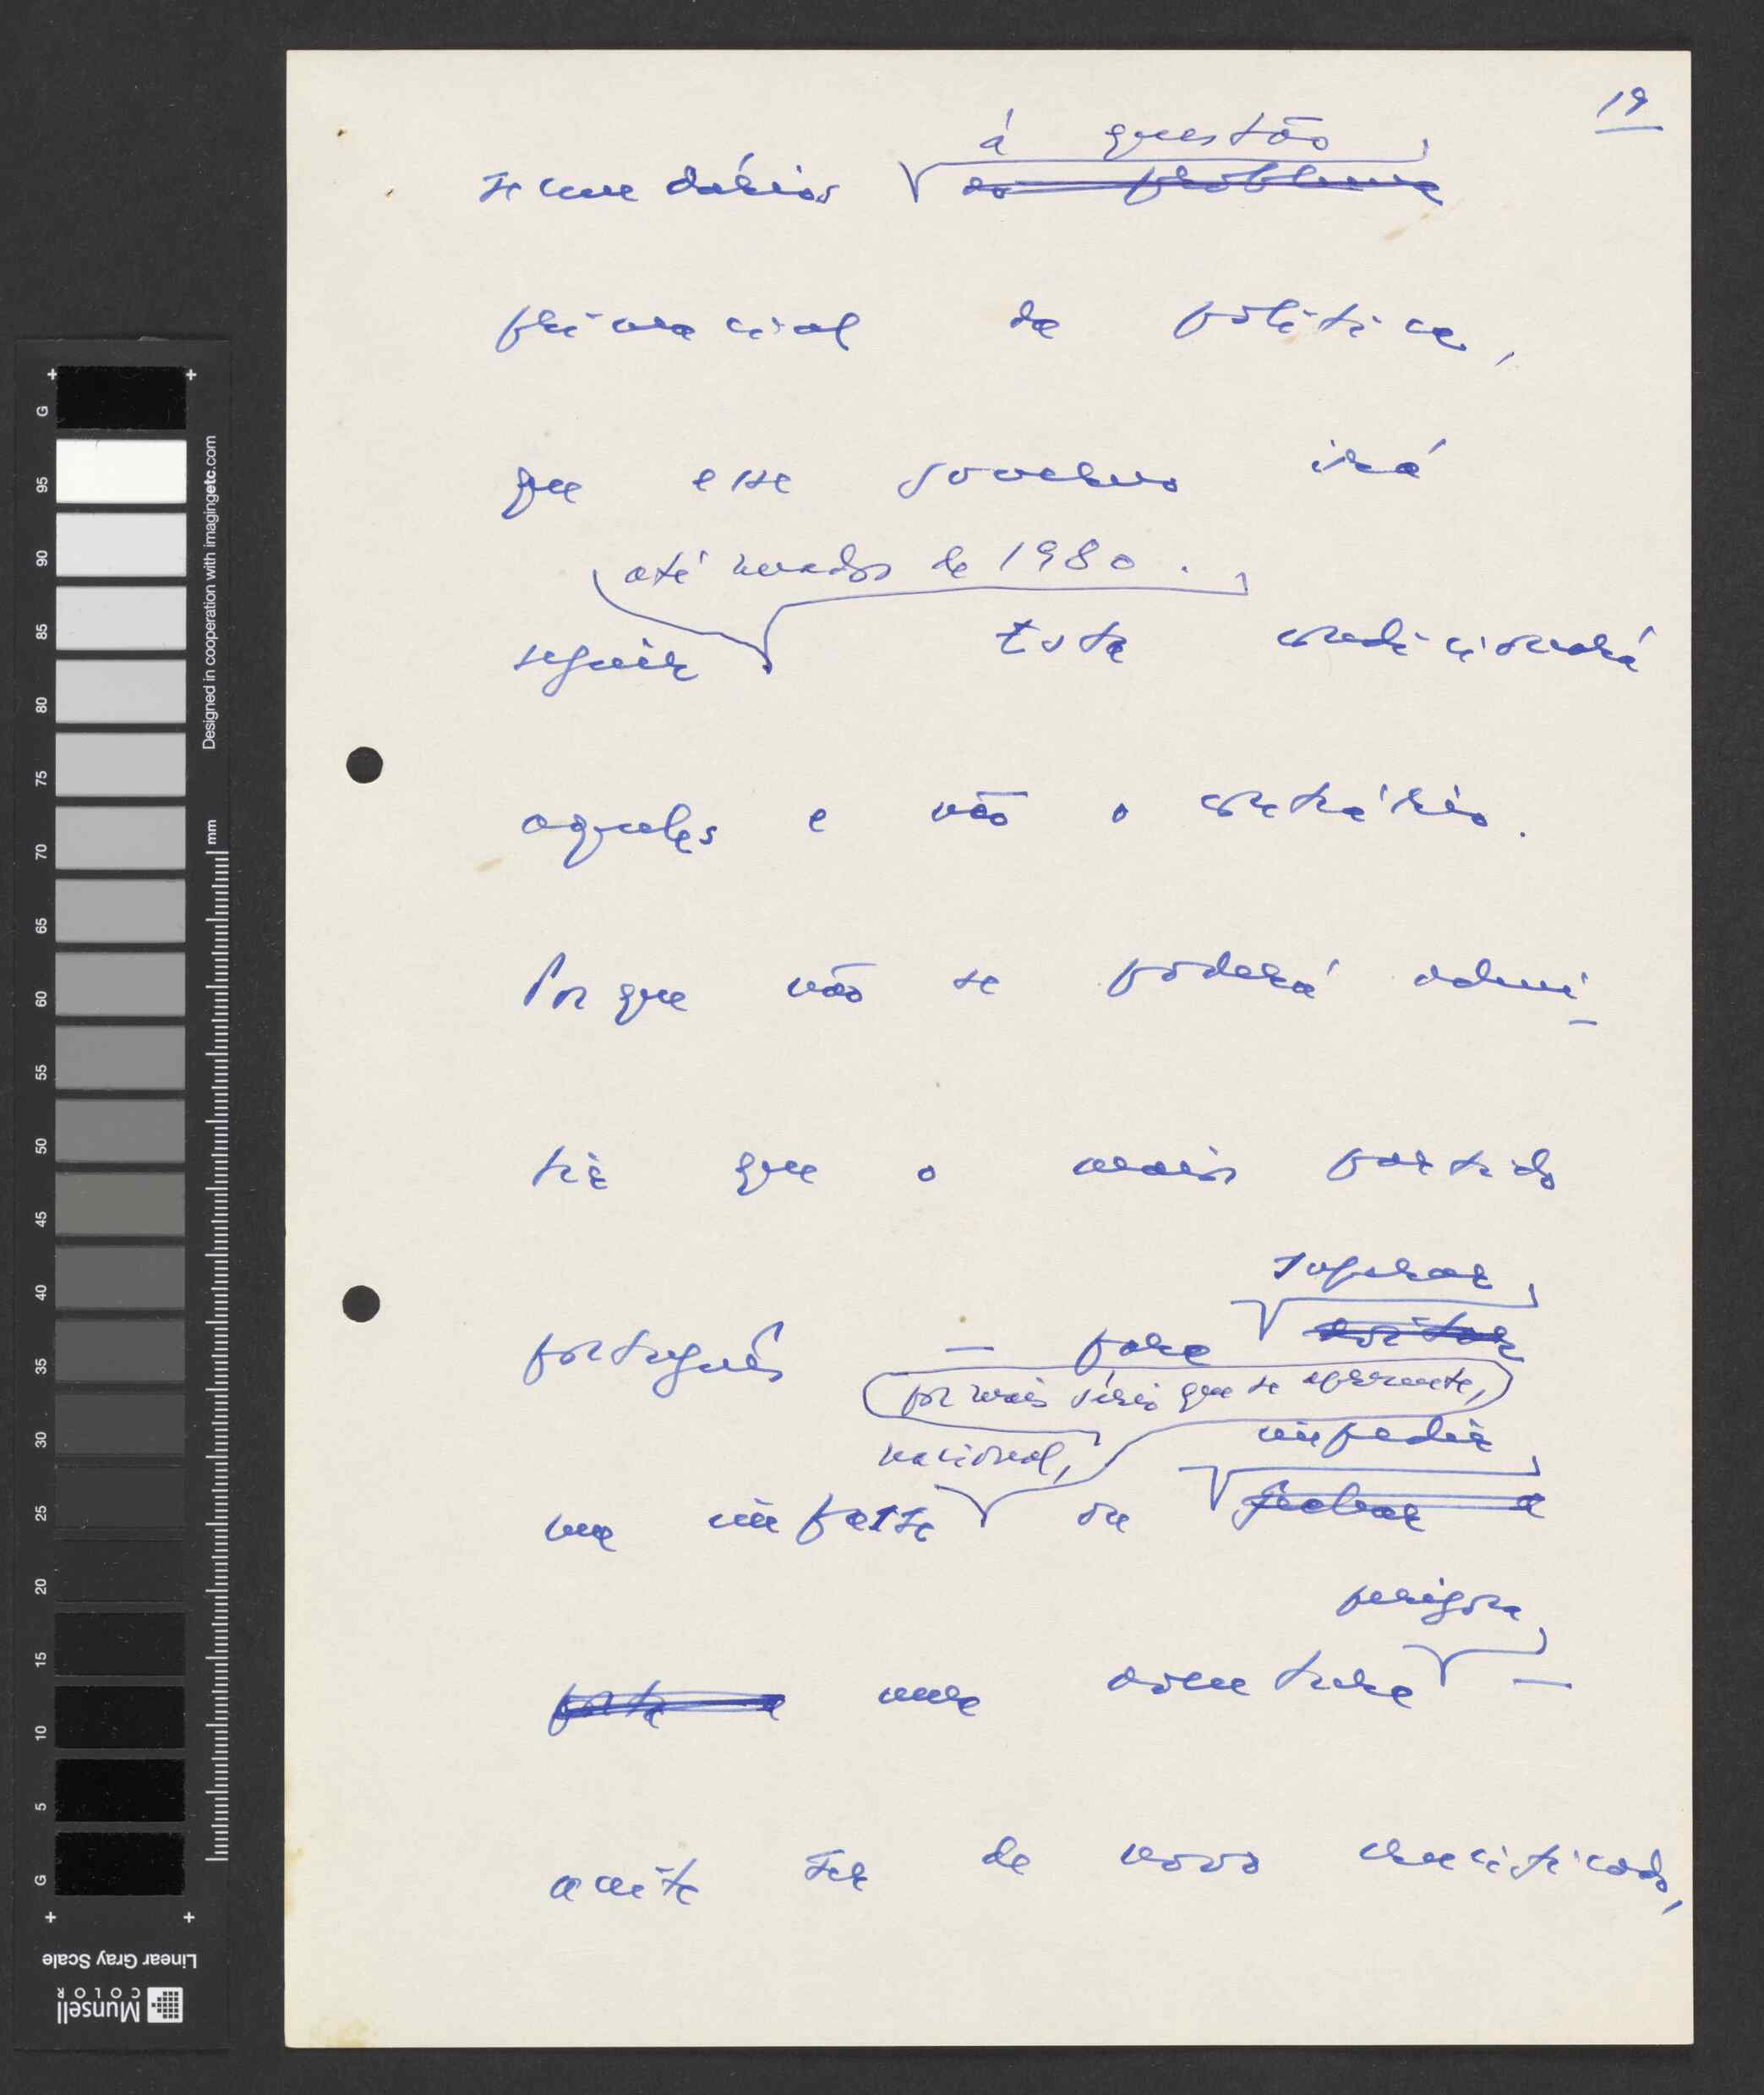 19
à questão
secundários ao problema
primacial da política,
que esse governo irá
até meados de 1980.
seguir Esta condicionará
aqueles e não o contrário.
Porque não se poderá admi-
tir que o maior partido
superar
português — para evitar
por mais sério que se apresente,
nacional, impedir
um impasse ou fechar a
perigosa
porta a uma aventura —
aceite ser de novo crucificado,
G 95 90 85 80 75 70 65 60 55 50 45 40 35 30 25 20 15 10 5 G
Designed in cooperation with imagingetc.com
mm
Linear Gray Scale
Munsell
COLOR